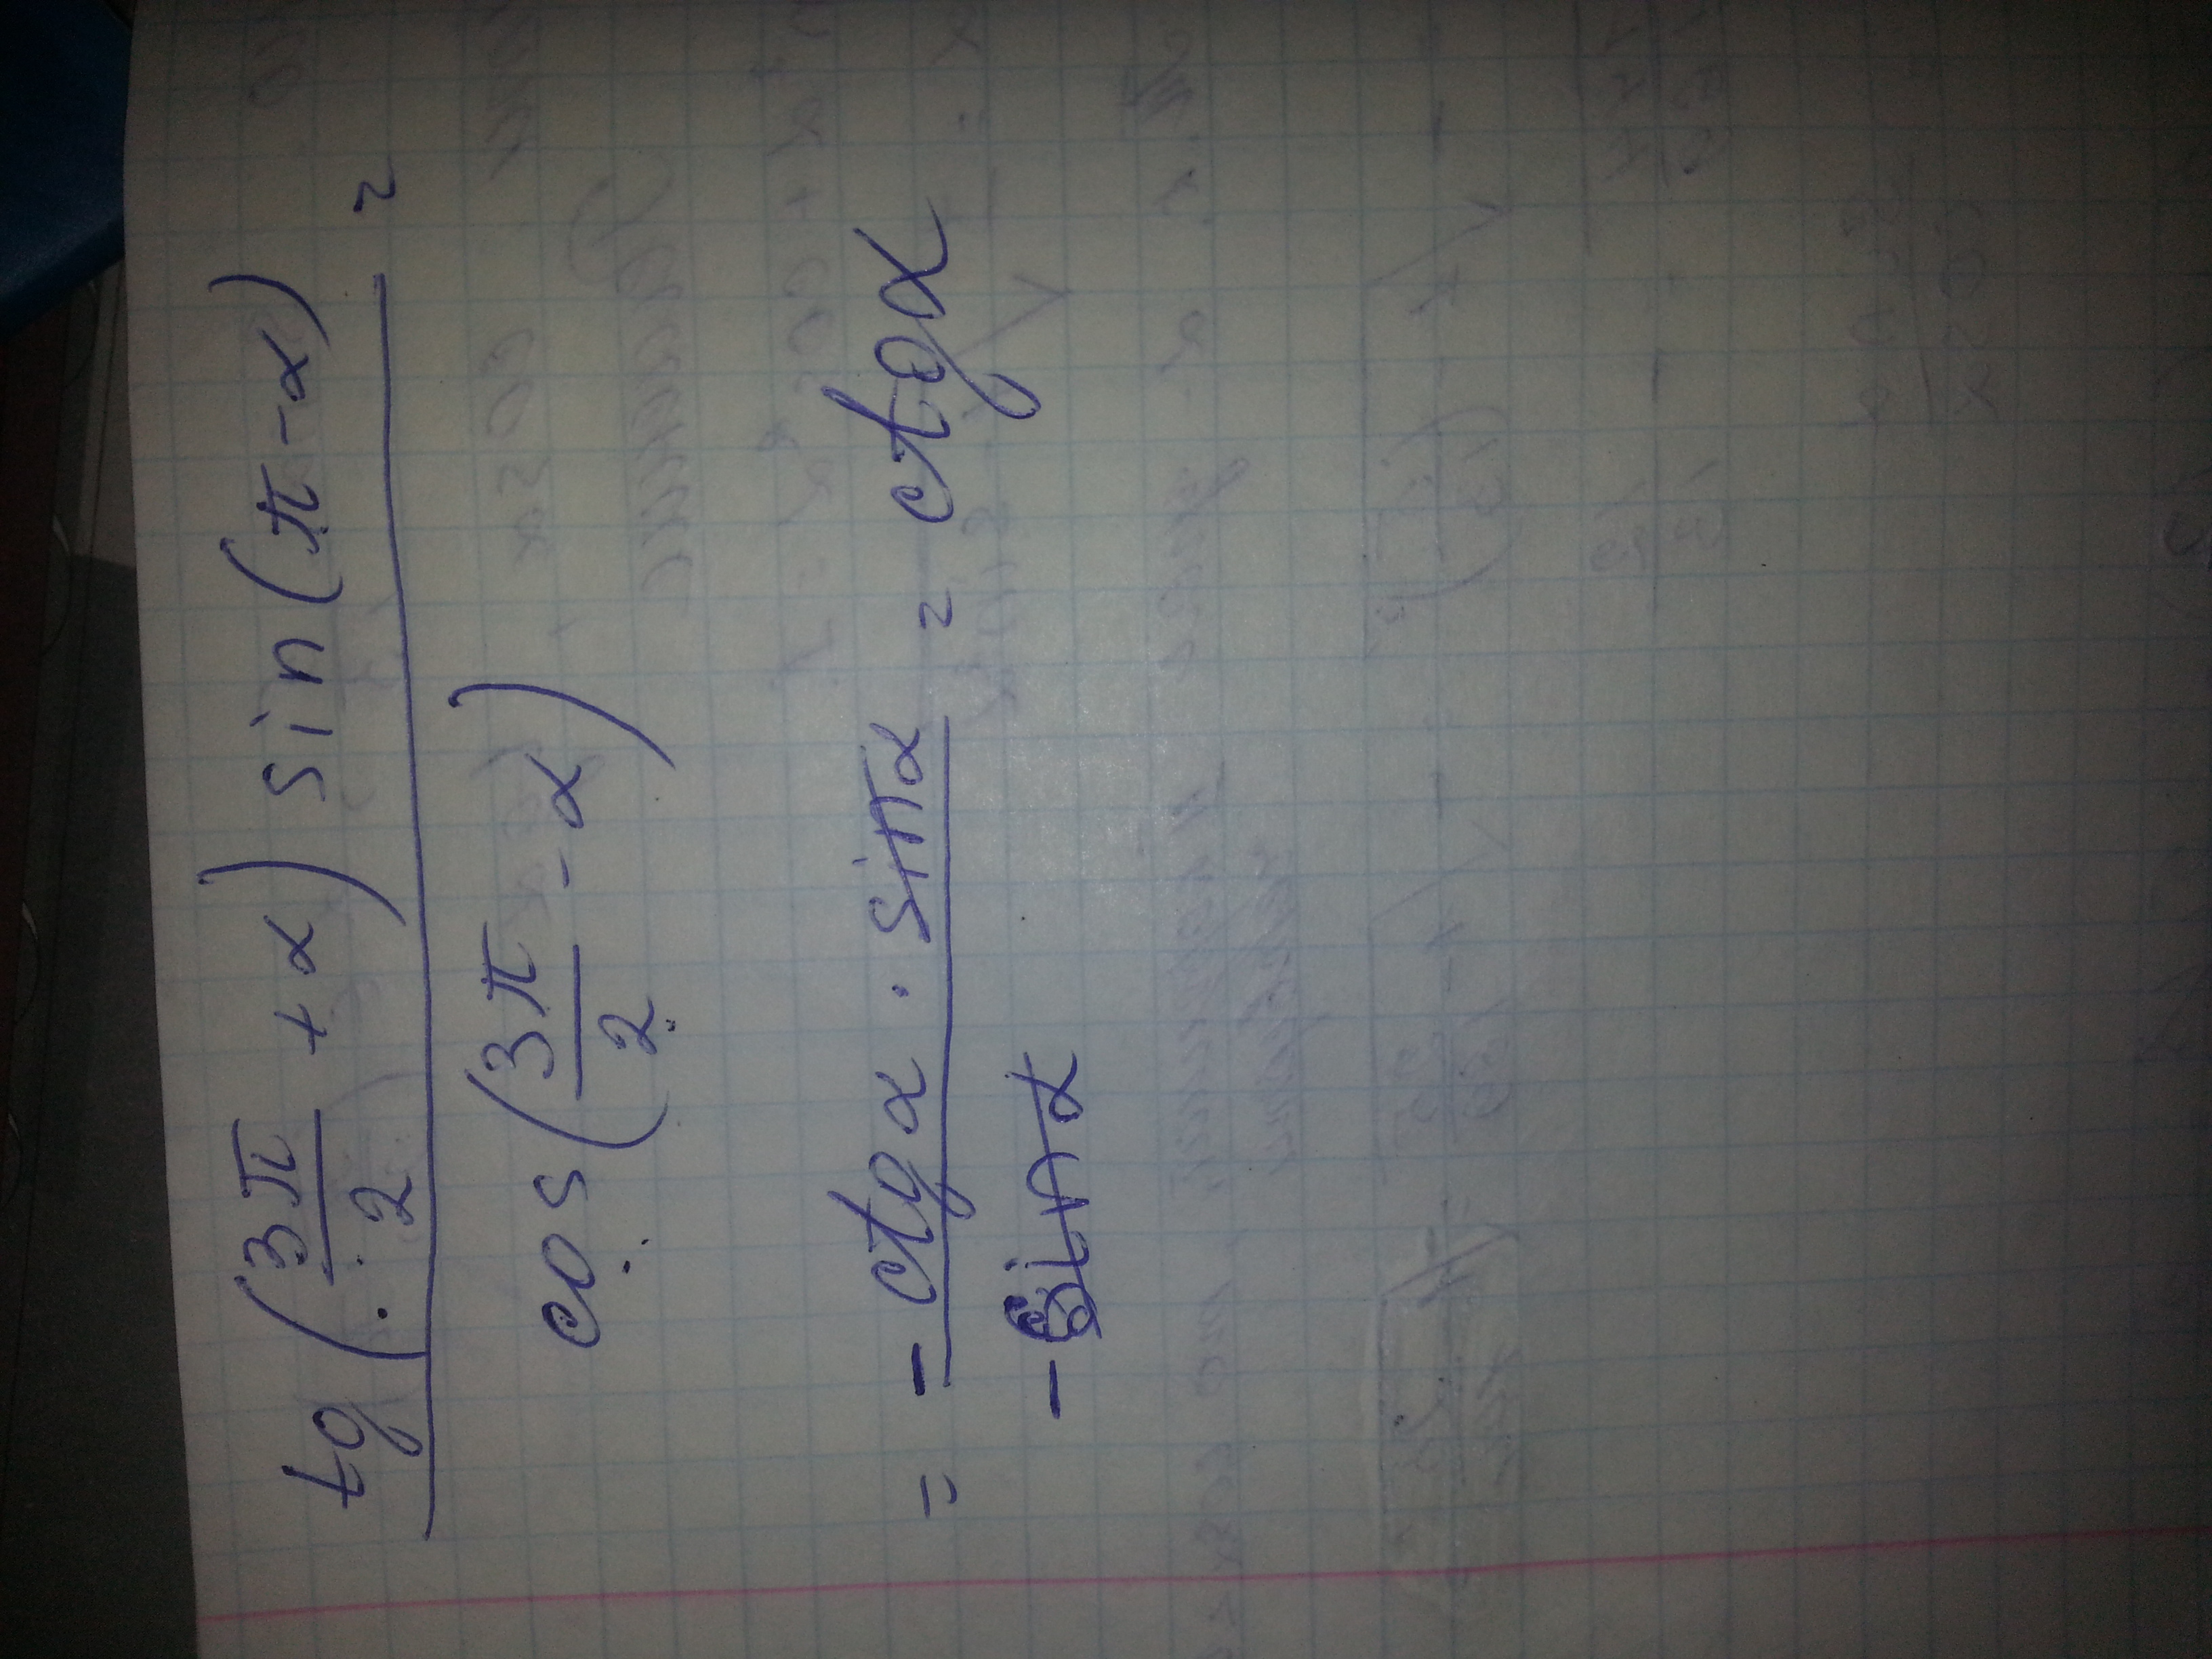 tg(3π/2 + α) sin(π - α) =
cos(3π/2 - α)
= - ctgα · sinα = ctgα
- sinα